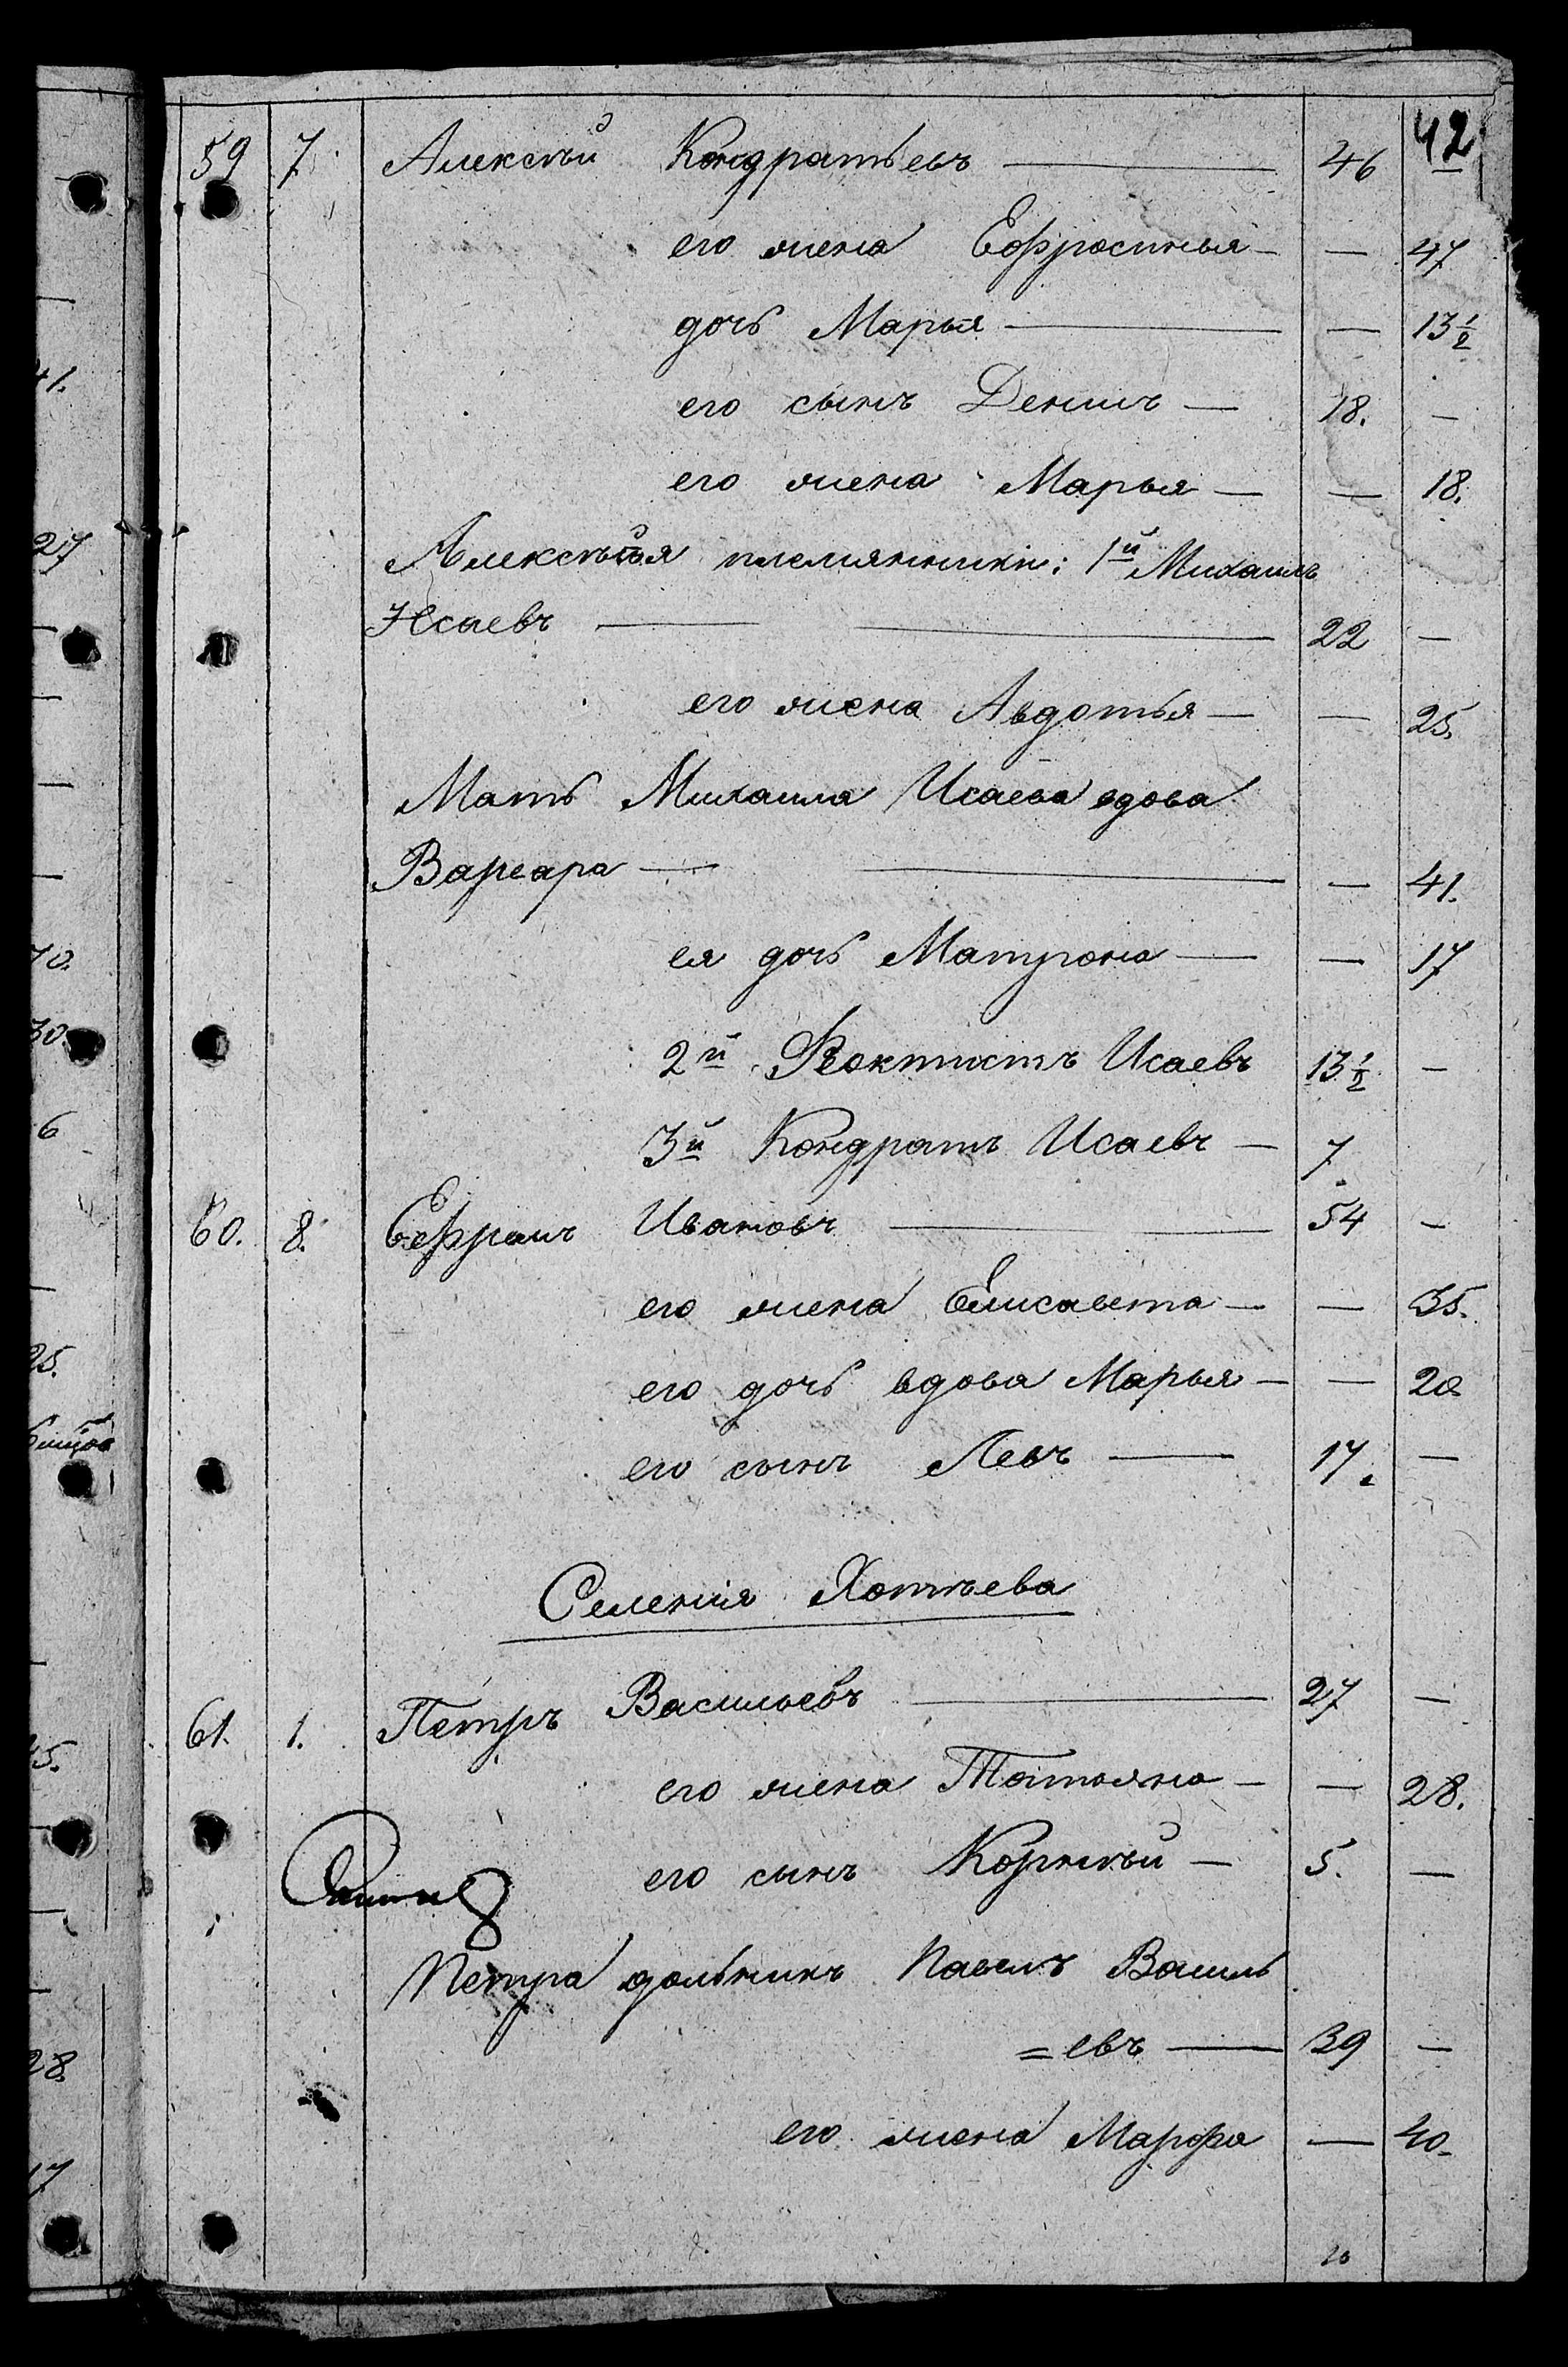 42
59 7. Алексѣй Кондратьевъ — 46
его жена Ефросинья — — 47
дочь Марья — — 13½
его сынъ Денисъ — 18. —
его жена Марья — — 18.
Алексѣя племянники: 1й Михаилъ
Исаевъ — 22 —
его жена Авдотья — — 25.
Мать Михаила Исаева вдова
Варвара — — 41.
ея дочь Матрона — — 17
2й Ѳеоктистъ Исаевъ 13½ —
3й Кондратъ Исаевъ — 7.
60. 8. Ефремъ Ивановъ — 54 —
его жена Елисавета — — 35.
его дочь вдова Марья — — 20.
его сынъ Левъ — 17. —
Селенія Хотѣева
61. 1. Петръ Васильевъ — 27 —
его жена Татьяна — — 28.
его сынъ Корнѣй — 5. —
Петра дольникъ Павелъ Василь
=евъ — 39 —
его жена Марфа — 40.
41.
27
70.
30.
6
25.
28.
17